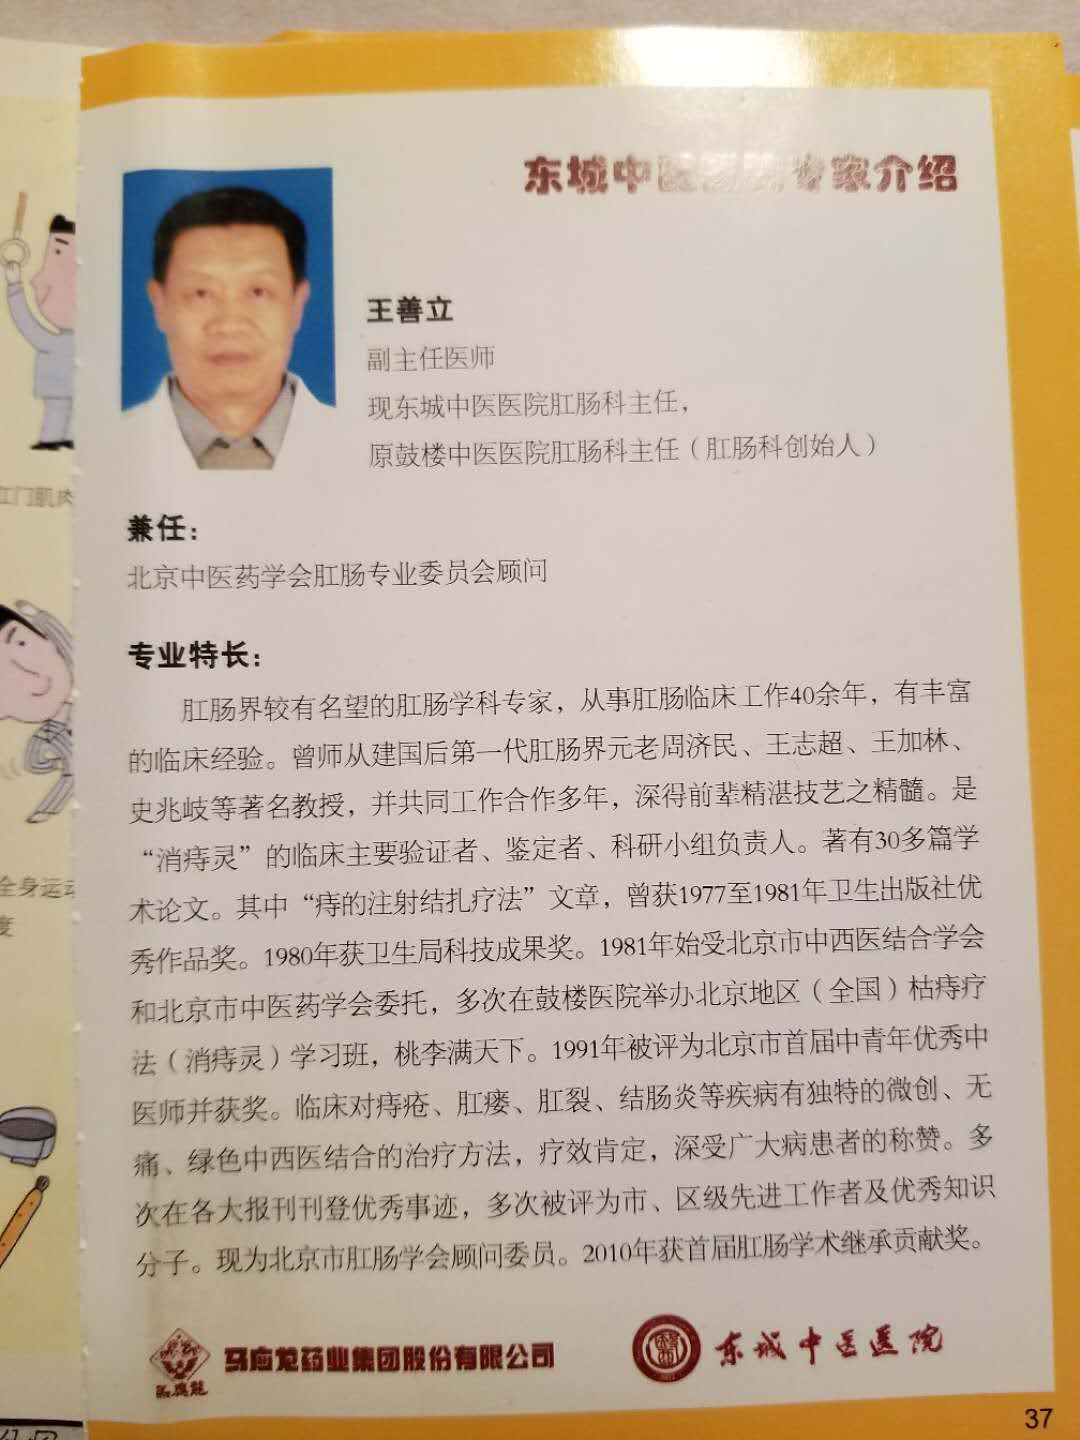 东城中医医院专家介绍
王善立
副主任医师
现东城中医医院肛肠科主任,
原鼓楼中医医院肛肠科主任(肛肠科创始人)
兼任:
北京中医药学会肛肠专业委员会顾问
专业特长:
肛肠界较有名望的肛肠学科专家，从事肛肠临床工作40余年，有丰富
的临床经验。曾师从建国后第一代肛肠界元老周济民、王志超、王加林、
史兆岐等著名教授，并共同工作合作多年，深得前辈精湛技艺之精髓。是
“消痔灵”的临床主要验证者、鉴定者、科研小组负责人。著有30多篇学
术论文。其中“痔的注射结扎疗法”文章，曾获1977至1981年卫生出版社优
秀作品奖。1980年获卫生局科技成果奖。1981年始受北京市中西医结合学会
和北京市中医药学会委托，多次在鼓楼医院举办北京地区（全国）枯痔疗
法（消痔灵）学习班，桃李满天下。1991年被评为北京市首届中青年优秀中
医师并获奖。临床对痔疮、肛瘘、肛裂、结肠炎等疾病有独特的微创、无
痛、绿色中西医结合的治疗方法，疗效肯定，深受广大病患者的称赞。多
次在各大报刊刊登优秀事迹，多次被评为市、区级先进工作者及优秀知识
分子。现为北京市肛肠学会顾问委员。2010年获首届肛肠学术继承贡献奖。
馬應龍
马应龙药业集团股份有限公司
东城中医医院
37
肛门肌肉
全身运动
度